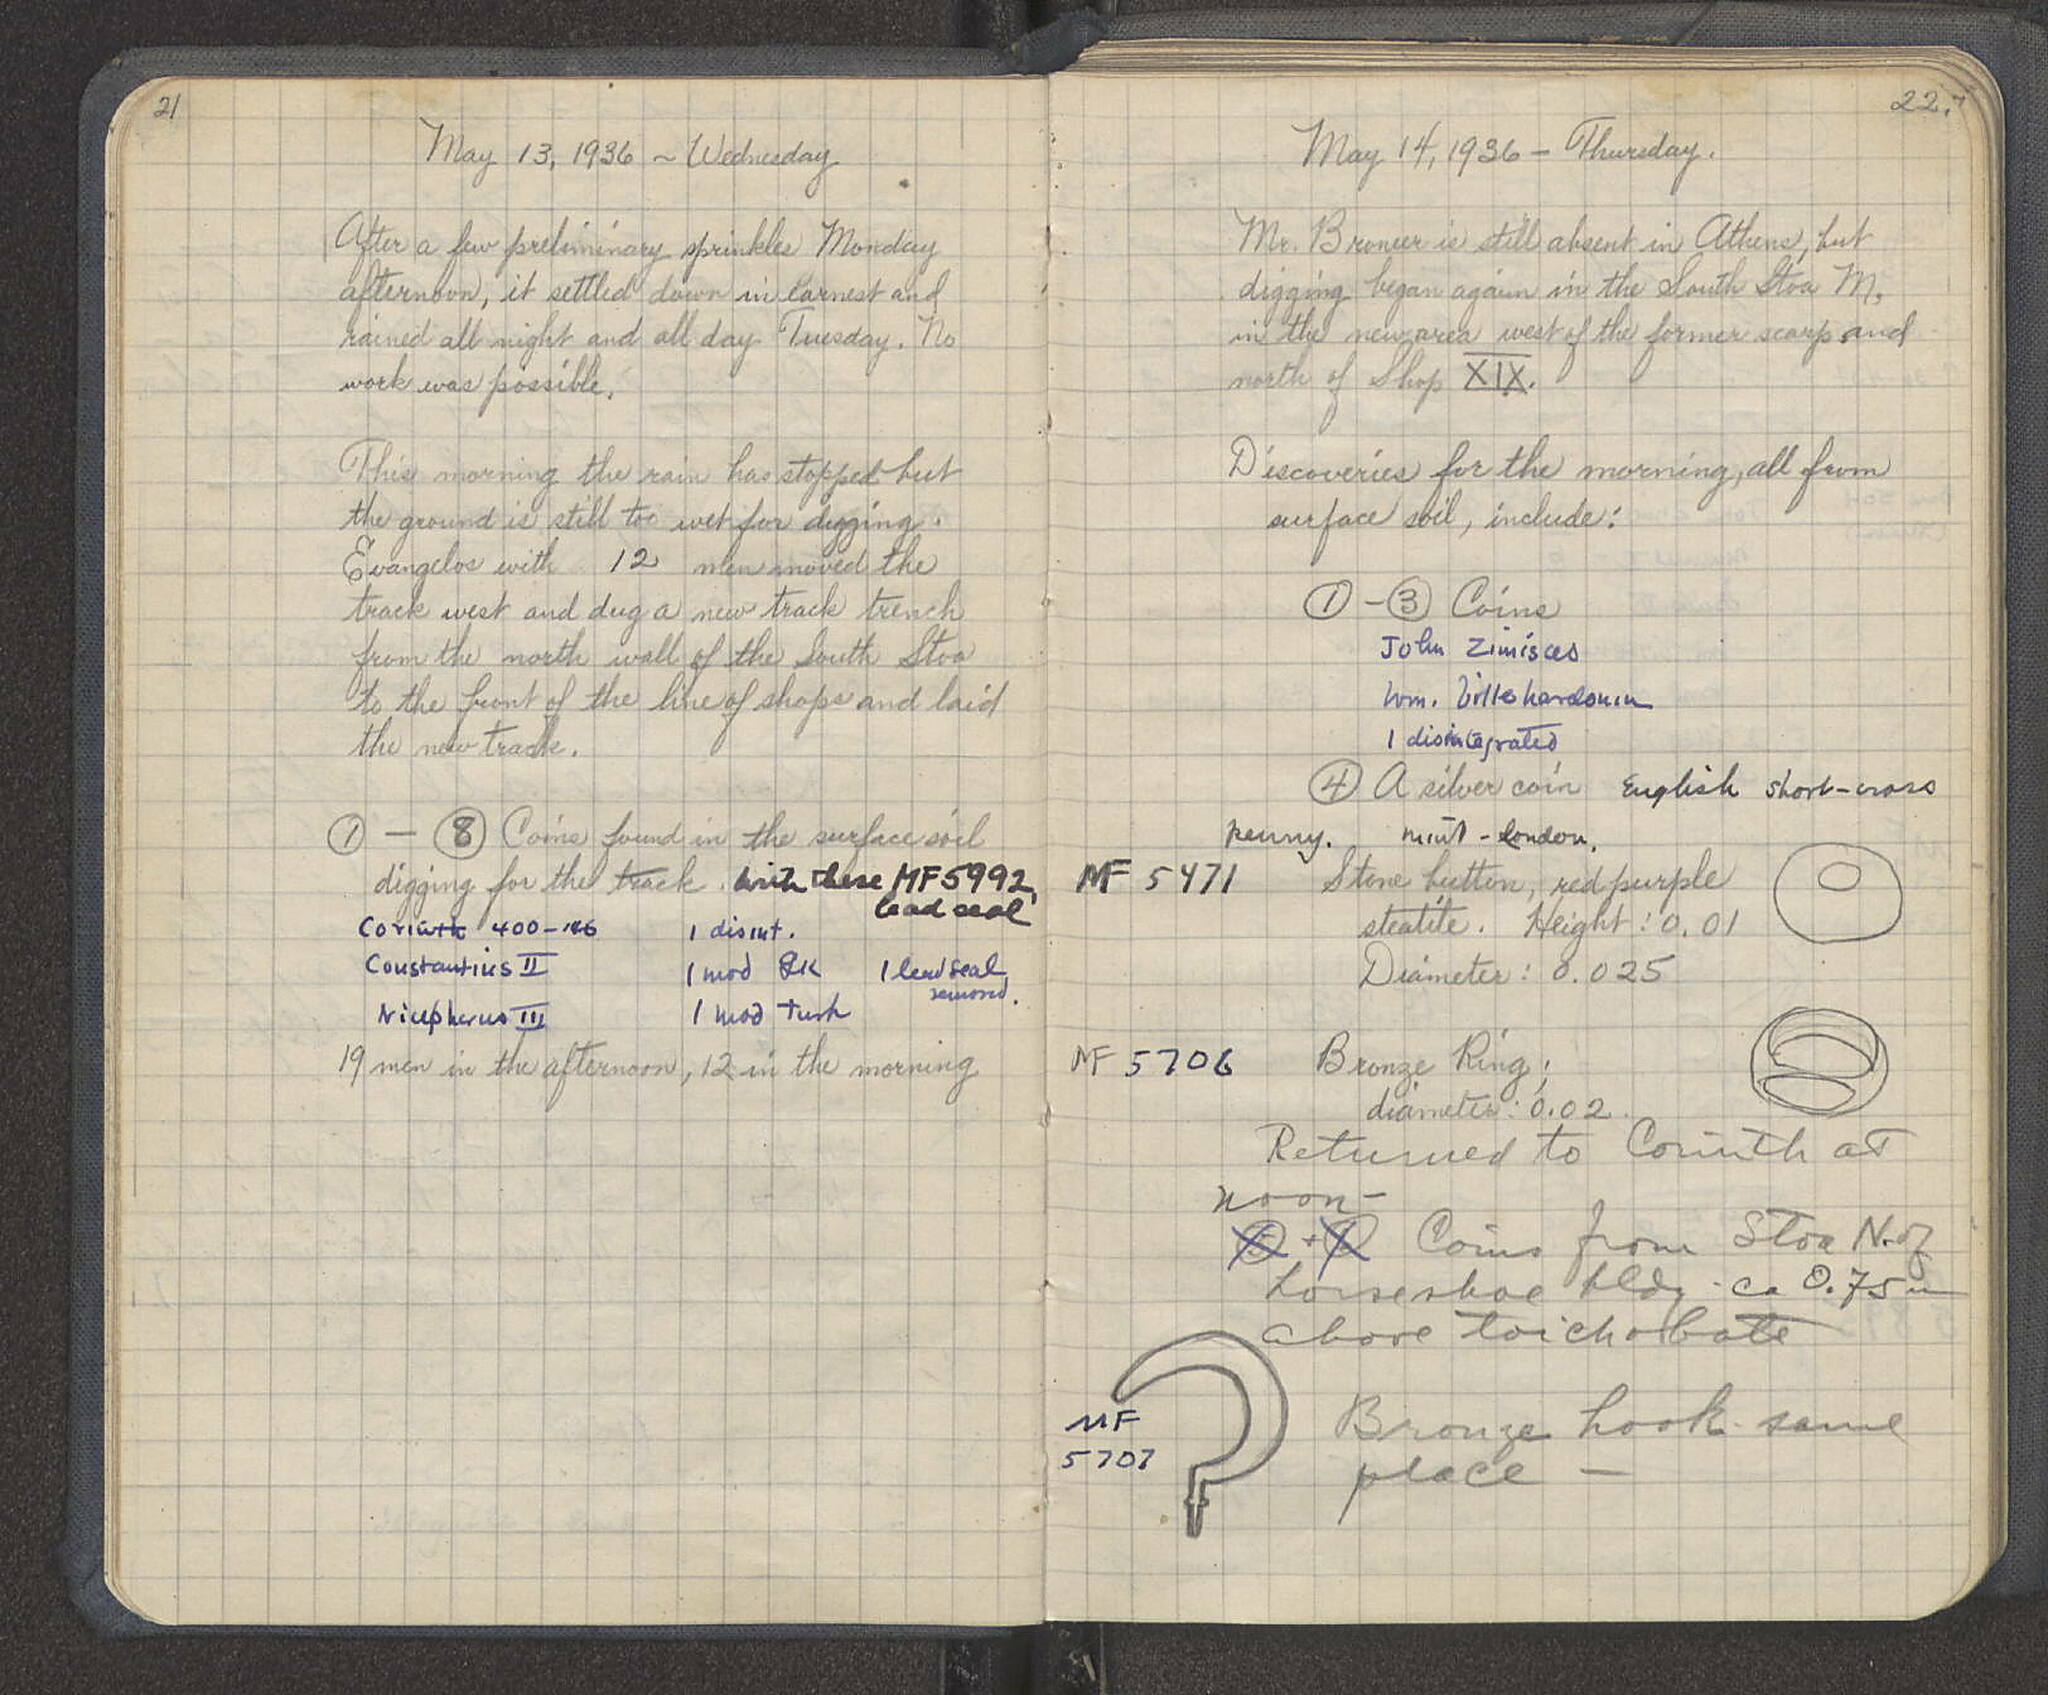 21
May 13, 1936 ~ Wednesday
After a few preliminary sprinkles Monday
afternoon, it settled down in earnest and
rained all night and all day Tuesday. No
work was possible.
This morning the rain has stopped but
the ground is still too wet for digging.
Evangelos with 12 men moved the
track west and dug a new track trench
from the north wall of the South Stoa
to the front of the line of shops and laid
the new track.
① — ⑧ Coins found in the surface soil
digging for the track. with these MF5992
lead seal
Corinth 400-146 1 disint.
Constantius II 1 mod GK 1 lead seal
removed.
Nicephorus III 1 mod Turk
19 men in the afternoon, 12 in the morning
22.
May 14, 1936 — Thursday.
Mr. Broneer is still absent in Athens, but
digging began again in the South Stoa M,
in the new area west of the former scarp and
north of Shop XIX.
Discoveries for the morning, all from
surface soil, include:
① - ③ Coins
John Zimisces
Wm. Villehardouin
1 disintegrated
④ A silver coin English short-cross
penny. mint - London.
MF 5471 Stone button, red purple
steatite. Height: 0.01
Diameter: 0.025
MF 5706 Bronze Ring;
diameter: 0.02
Returned to Corinth at
noon —
Coins from Stoa N. of
horseshoe bldg - ca 0.75 m
above toichobate
MF
5707
Bronze hook same
place —